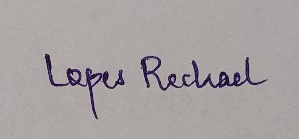 Lopes Rechael